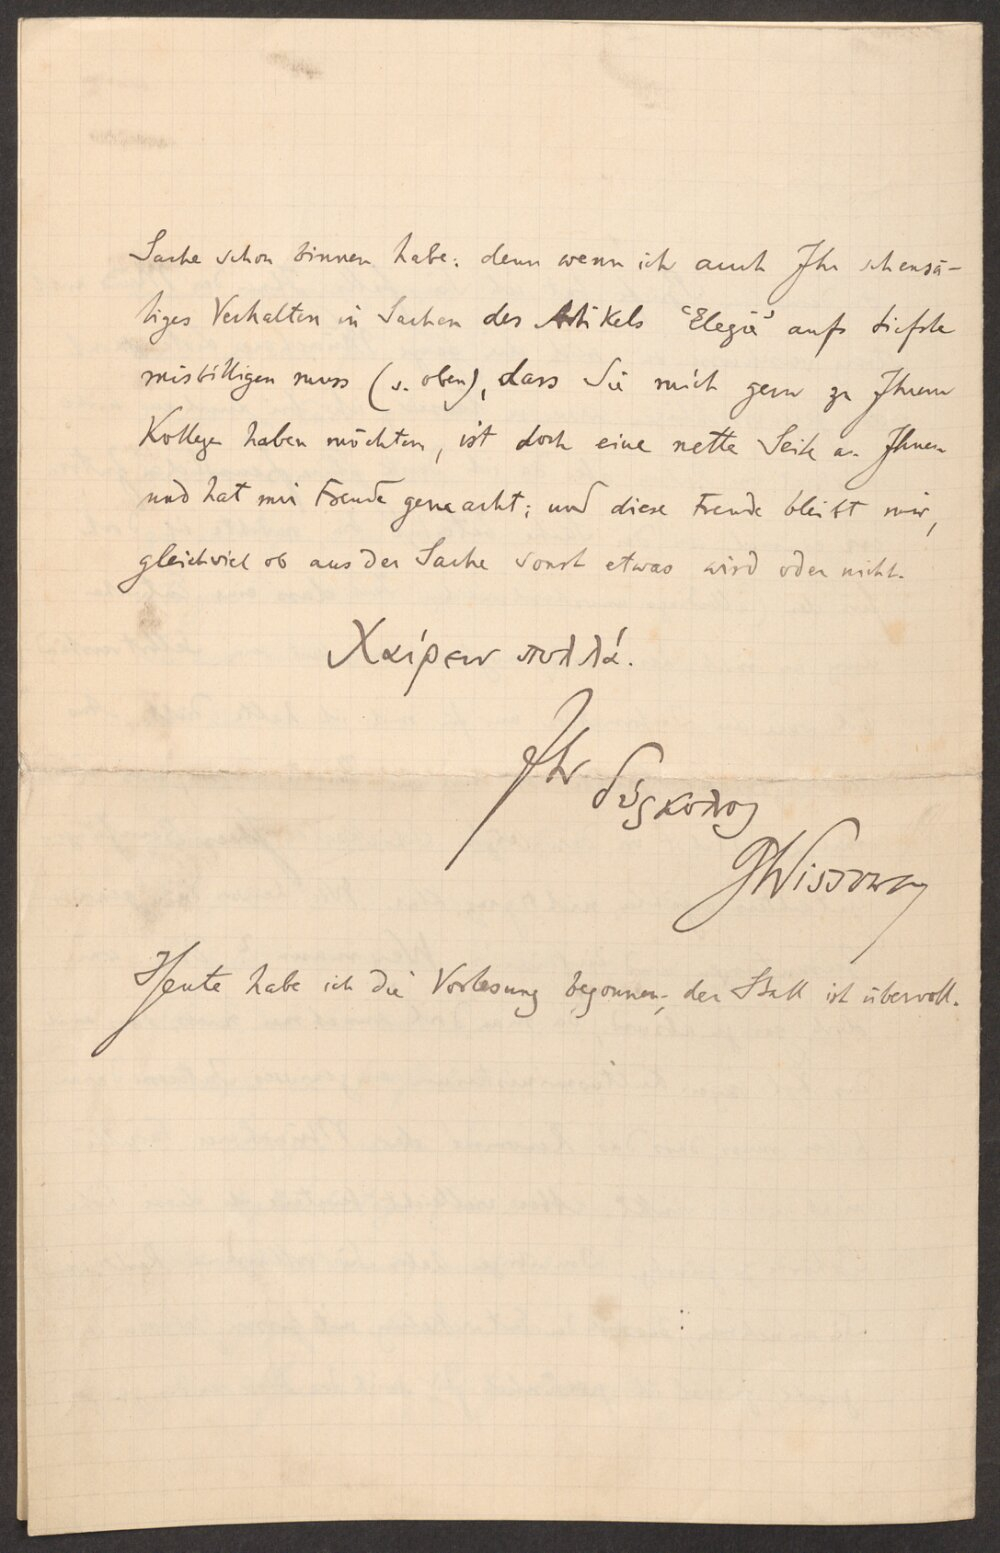 Sache schon binnen habe: denn wenn ich auch Ihr scheusä-
liges Verhalten in Sachen des Artikels "Elegie" aufs tiefste
misbilligen muss (s. oben), dass Sie mich gern zu Ihrem
Kollegen haben möchten, ist doch eine nette Seite an Ihnen
und hat mir Freude gemacht; und diese Freude bleibt mir,
gleichviel ob aus der Sache sonst etwas wird oder nicht.
Χαίρειν πολλά.
Ihr δύςκολος
GWissowa
Heute habe ich die Vorlesung begonnen, der Stall ist übervoll.